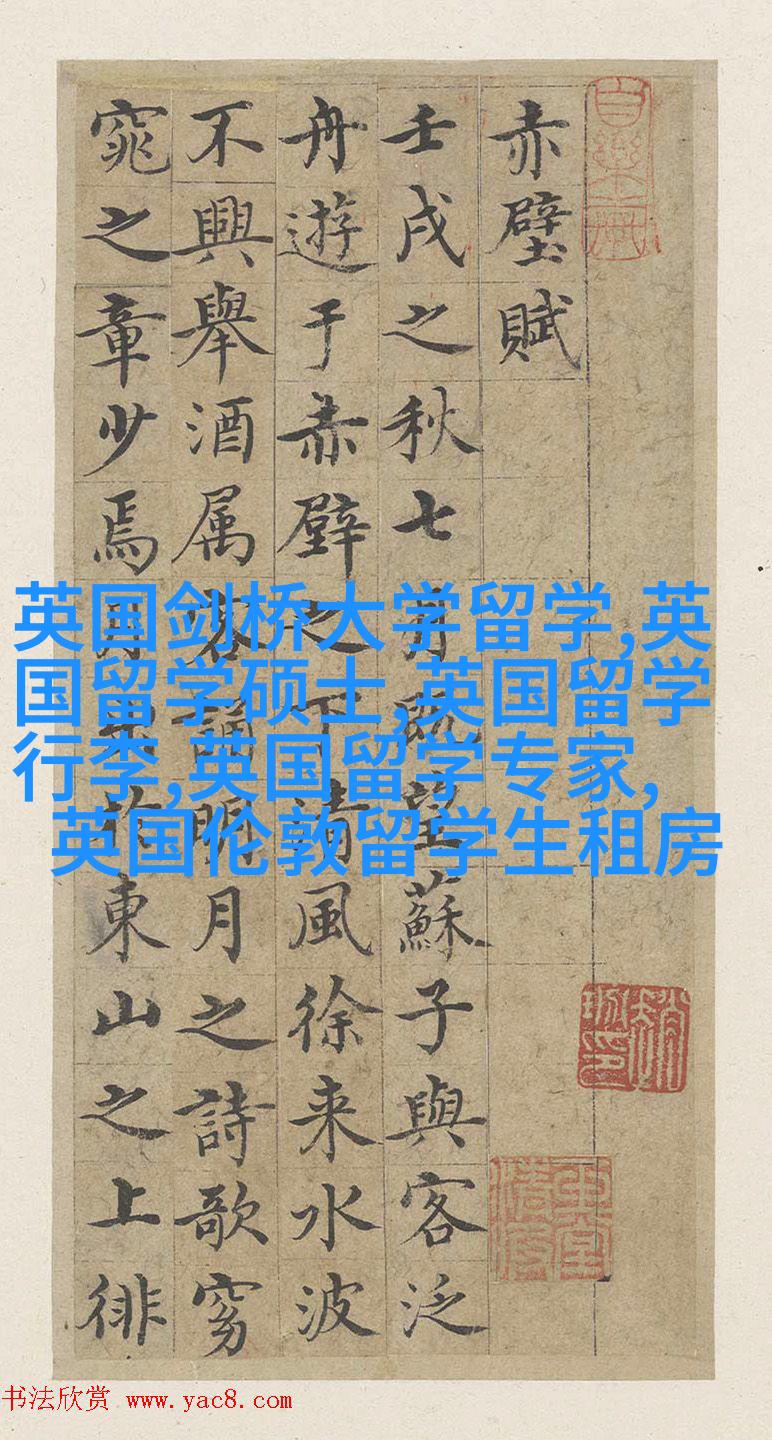 赤壁賦
壬戌之秋七月既望蘇子與客泛
舟遊于赤壁之下清風徐来水波
不興舉酒属客誦明月之詩歌窈
窕之章少焉月出於東山之上徘
英国剑桥大学留学,英
国留学硕士,英国留学
行李,英国留学专家,
英国伦敦留学生租房
书法欣赏 www.yac8.com